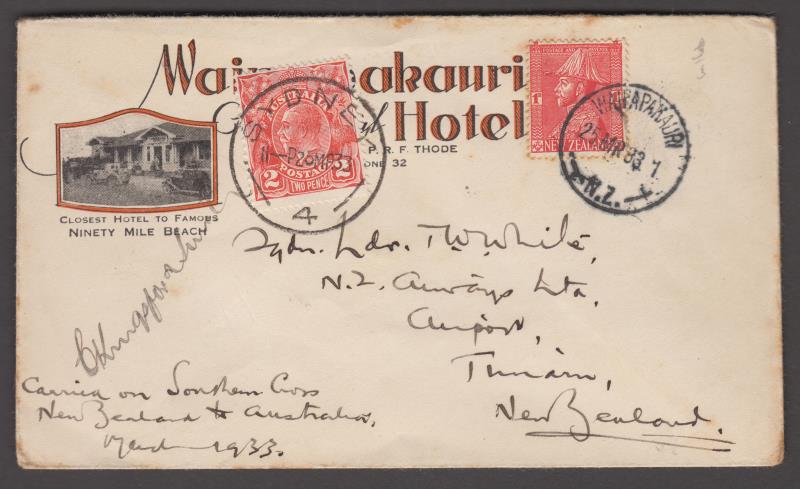 Wai akauri
Hotel
P. R. F. THODE
ONE 32
CLOSEST HOTEL TO FAMOUS
NINETY MILE BEACH
AUSTRALIA
2 POSTAGE 2
TWO PENCE
SYDNEY
11—P 26 MR 33
4
POSTAGE AND REVENUE
1D
NEW ZEALAND
WAIPAPAKAURI
25 MR 33 1
N.Z.
Sqdn. Ldr. T. W. White,
N.Z. Airways Ltd.,
Airport,
Timaru,
New Zealand.
C Kingsford Smith
Carried on Southern Cross
New Zealand to Australia,
March 1933.